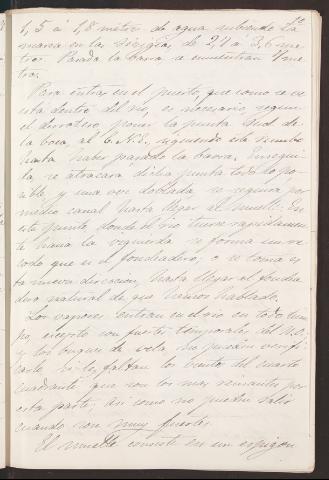 1,5 á 1,8 metros de agua subiendo la
marea en las sizigias de 2,7 á 3,6 me-
tros. Pasada la barra se encuentran 4 me-
tros.
Para entrar en el puerto que como se ve
está dentro del rio, es necesario seguir
el derrotero poner la punta Sud de
la boca, al E.N.E., siguiendo este rumbo
hasta haber pasado la barra. Ensegui-
da se atracará dicha punta todo lo po-
sible, y una vez doblada se seguirá por
medio canal hasta llegar al muelle. En
este punto, donde el rio tuerce rapidamen-
te hacia la izquierda se forma un re-
codo que es el fondeadero; o se toma la
nueva direccion, hasta llegar al fondea-
dero natural de que hemos hablado.
Los vapores entran en el rio en todo tiem-
po, excepto con fuertes temporales del N.O.,
y los buques de vela no pueden verifi-
carlo si les faltan los vientos del cuarto
cuadrante que son los mas reinantes por
esta parte; asi como no pueden salir
cuando son muy fuertes.
El muelle consiste en un espigon